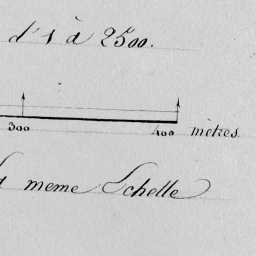 d'1 à 2500.
300 400 mètres
meme Echelle